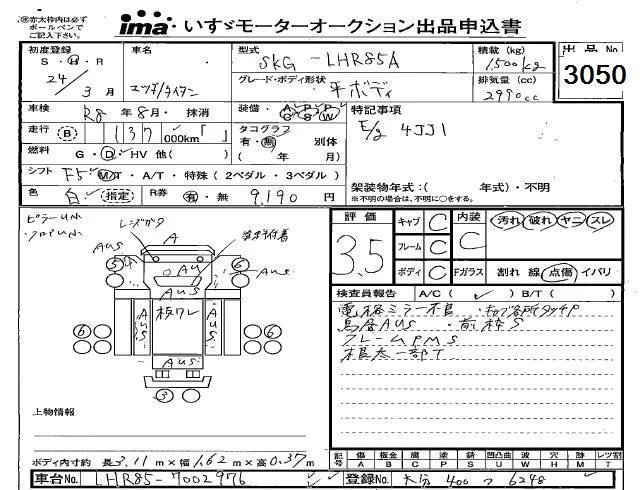 ※赤太枠内は必ず
ボールペンで
ご記入下さい。
ima いすゞモーターオークション出品申込書
初度登録 車名 型式 積載(kg) 出品No
S・H・R 24/3月 SKG-LHR85A 1,500kg 3050
グレード・ボディ形状 平ボディ 排気量(cc) 2990cc
車検 R8年8月・抹消 装備・A P P C S W 特記事項
走行 (B) 137,000km「 」 タコグラフ 有・無 別体 E/g 4JJ1
燃料 G・D・HV 他( ) ( 年 月)
シフト F5 M/T・A/T・特殊(2ペダル・3ペダル) 架装物年式:( 年式)・不明
色 白 (指定) R券 有・無 9,190円 ※不明の場合は、不明に○をする。
ピラーUM
フロアUM
レンズガタ
A
AUS
AU
AUS
板ワレ
AUS
AUS
AUS
AUS
③ ⑥
⑥ ⑥
③
評価 3.5
キャブ C 内装 C 汚れ・破れ・ヤニ・スレ
フレーム C
ボディ C Fガラス 割れ 線 点傷・イパリ
検査員報告 A/C( ✓ ) B/T( )
電格ミラー不良・キャブ各所タッチP
鳥居AUS・前枠S
フレームPMS
根太一部T
上物情報
記号 傷 板金 腐 塗 錆 凹 凸凹曲 波 穴 跡 レツ割
A B C P S U W H M T
ボディ内寸約 長3.11m×幅1.62m×高0.37m
車台No. LHR85-7002976 登録No. 大分 400 つ 6248